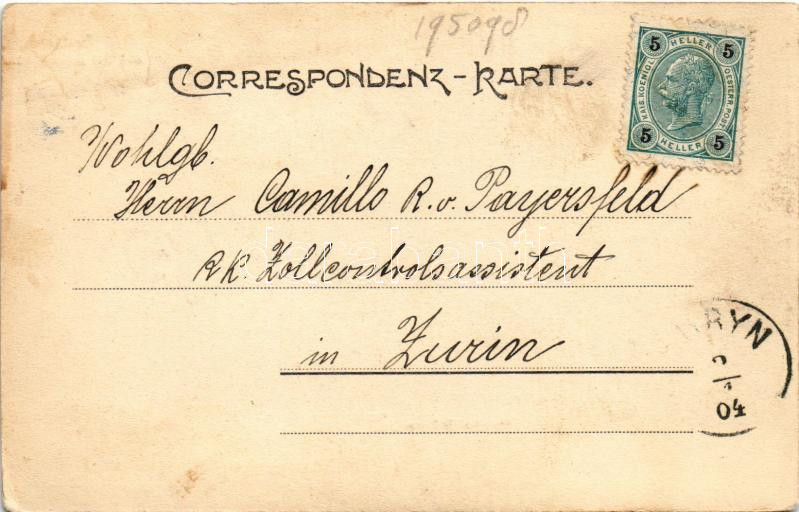 195098
CORRESPONDENZ-KARTE.
5 HELLER 5
KAIS. KOENIGL. OESTERR. POST.
5 HELLER 5
Wohlgb.
Herrn Camillo R. v. Payersfeld
KK. Zollcontrolsassistent
in Zurin
RYN
04